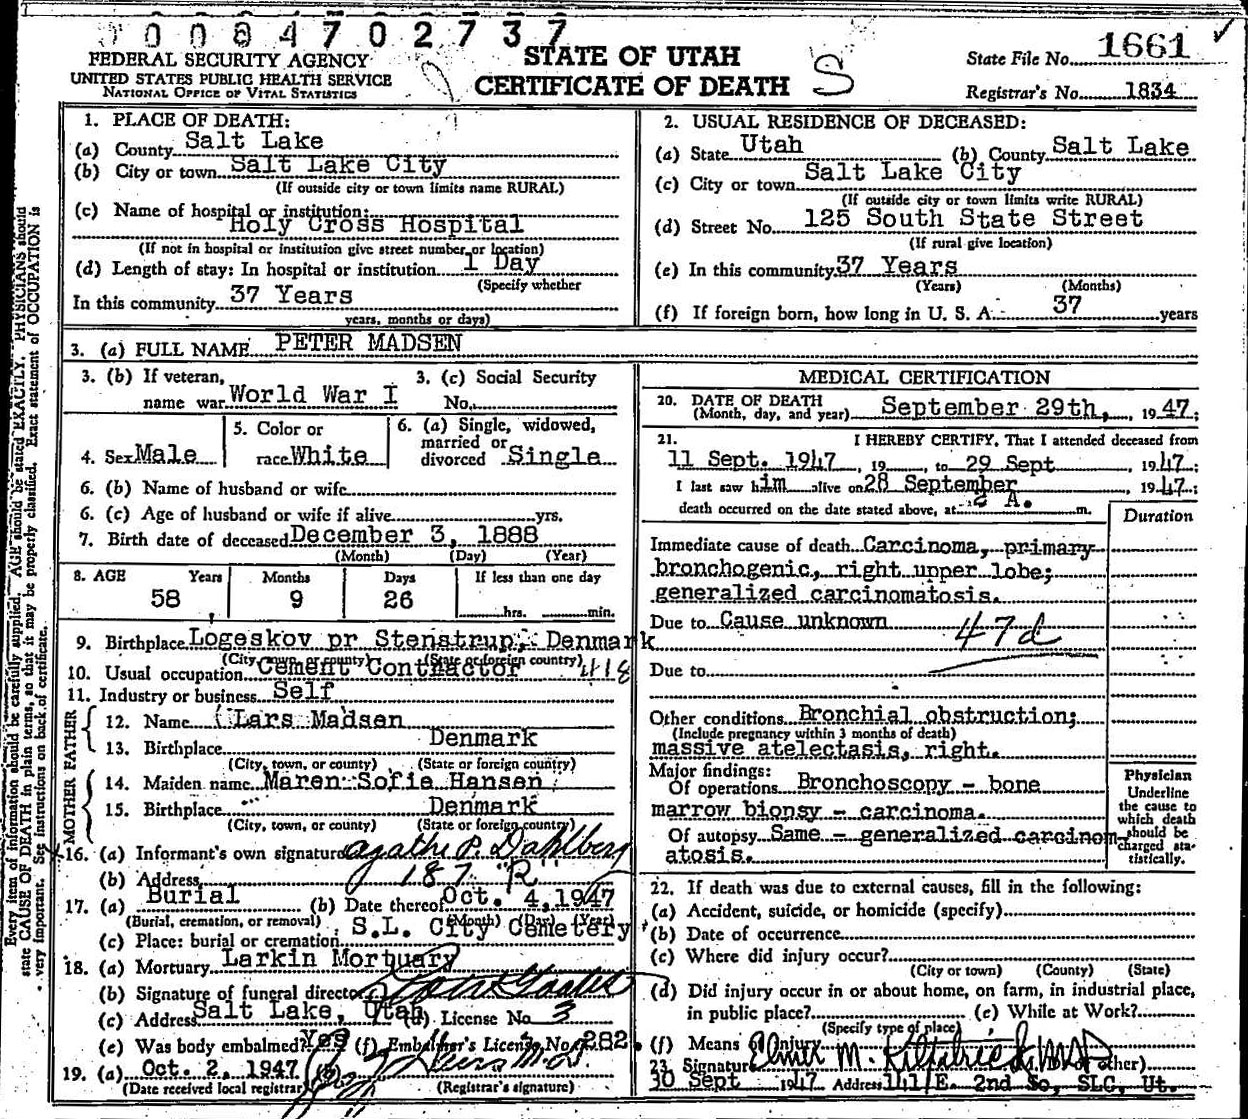 0 0 8 4 7 0 2 7 3 7
FEDERAL SECURITY AGENCY
UNITED STATES PUBLIC HEALTH SERVICE
NATIONAL OFFICE OF VITAL STATISTICS
STATE OF UTAH
CERTIFICATE OF DEATH
S
State File No. 1661
Registrar's No. 1834
1. PLACE OF DEATH:
(a) County Salt Lake
(b) City or town Salt Lake City
(If outside city or town limits name RURAL)
(c) Name of hospital or institution:
Holy Cross Hospital
(If not in hospital or institution give street number or location)
(d) Length of stay: In hospital or institution 1 Day
(Specify whether
In this community 37 Years
years, months or days)
2. USUAL RESIDENCE OF DECEASED:
(a) State Utah (b) County Salt Lake
(c) City or town Salt Lake City
(If outside city or town limits write RURAL)
(d) Street No. 125 South State Street
(If rural give location)
(e) In this community 37 Years
(Years) (Months)
(f) If foreign born, how long in U. S. A. 37 years
3. (a) FULL NAME PETER MADSEN
3. (b) If veteran,
name war World War I
3. (c) Social Security
No.
4. Sex Male
5. Color or
race White
6. (a) Single, widowed,
married or
divorced Single
6. (b) Name of husband or wife
6. (c) Age of husband or wife if alive yrs.
7. Birth date of deceased December 3, 1888
(Month) (Day) (Year)
8. AGE Years Months Days If less than one day
58 9 26 hrs. min.
9. Birthplace Logeskov pr Stenstrup, Denmark
(City, town, or county) (State or foreign country)
10. Usual occupation Cement Contractor 418
11. Industry or business Self
FATHER
12. Name Lars Madsen
13. Birthplace Denmark
(City, town, or county) (State or foreign country)
MOTHER
14. Maiden name Maren Sofie Hansen
15. Birthplace Denmark
(City, town, or county) (State or foreign country)
16. (a) Informant's own signature Agathe P. Dahlberg
(b) Address 187 "R"
17. (a) Burial (b) Date thereof Oct. 4, 1947
(Burial, cremation, or removal) (Month) (Day) (Year)
(c) Place: burial or cremation S.L. City Cemetery
18. (a) Mortuary Larkin Mortuary
(b) Signature of funeral director
(c) Address Salt Lake, Utah (d) License No. 3
(e) Was body embalmed? Yes (f) Embalmer's License No. 282.
19. (a) Oct. 2, 1947 (b) M.D.
(Date received local registrar) (Registrar's signature)
MEDICAL CERTIFICATION
20. DATE OF DEATH
(Month, day, and year) September 29th, 1947;
21. I HEREBY CERTIFY, That I attended deceased from
11 Sept. 1947, 19 , to 29 Sept , 1947;
I last saw him alive on 28 September , 1947;
death occurred on the date stated above, at 2 A. m.
Duration
Immediate cause of death Carcinoma, primary
bronchogenic, right upper lobe;
generalized carcinomatosis.
Due to Cause unknown 47d
Due to
Other conditions Bronchial obstruction;
(Include pregnancy within 3 months of death)
massive atelectasis, right.
Major findings:
Of operations Bronchoscopy - bone
marrow biopsy - carcinoma.
Of autopsy Same - generalized carcinom-
atosis.
Physician
Underline
the cause to
which death
should be
charged sta-
tistically.
22. If death was due to external causes, fill in the following:
(a) Accident, suicide, or homicide (specify)
(b) Date of occurrence
(c) Where did injury occur?
(City or town) (County) (State)
(d) Did injury occur in or about home, on farm, in industrial place,
in public place? (e) While at Work?
(Specify type of place)
(f) Means of Injury
23. Signature Elmer M. Kilpatrick MD (M.D. or other)
30 Sept 1947 Address 141 E. 2nd So, SLC, Ut.
Every item of information should be carefully supplied. AGE should be stated EXACTLY. PHYSICIANS should
state CAUSE OF DEATH in plain terms, so that it may be properly classified. Exact statement of OCCUPATION is
very important. See instructions on back of certificate.